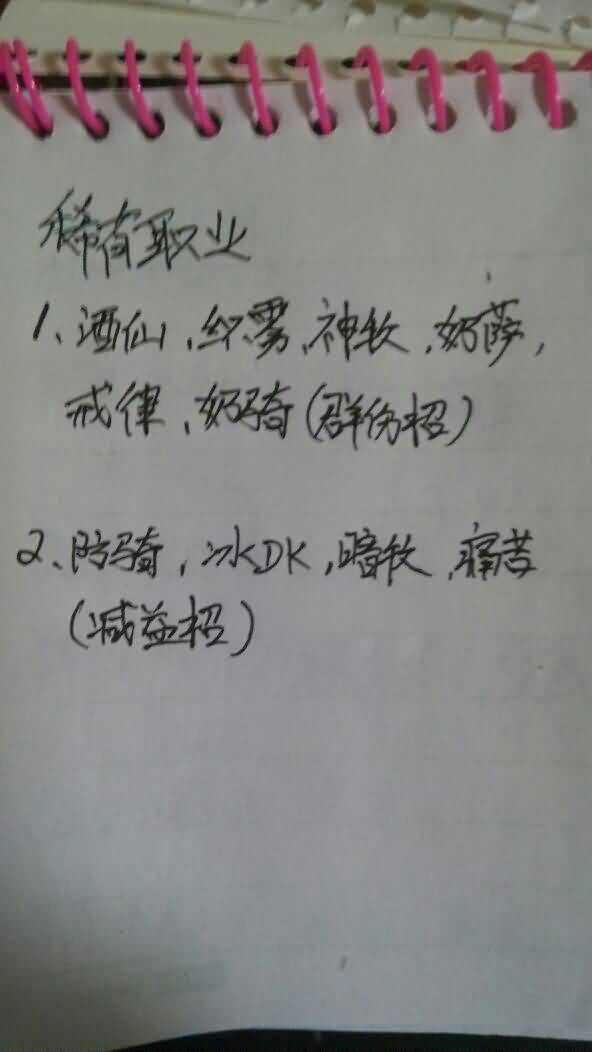 稀有职业
1、酒仙、织雾、神牧、奶萨,
戒律、奶骑(群伤招)
2、防骑,冰DK,暗牧、痛苦
(减益招)